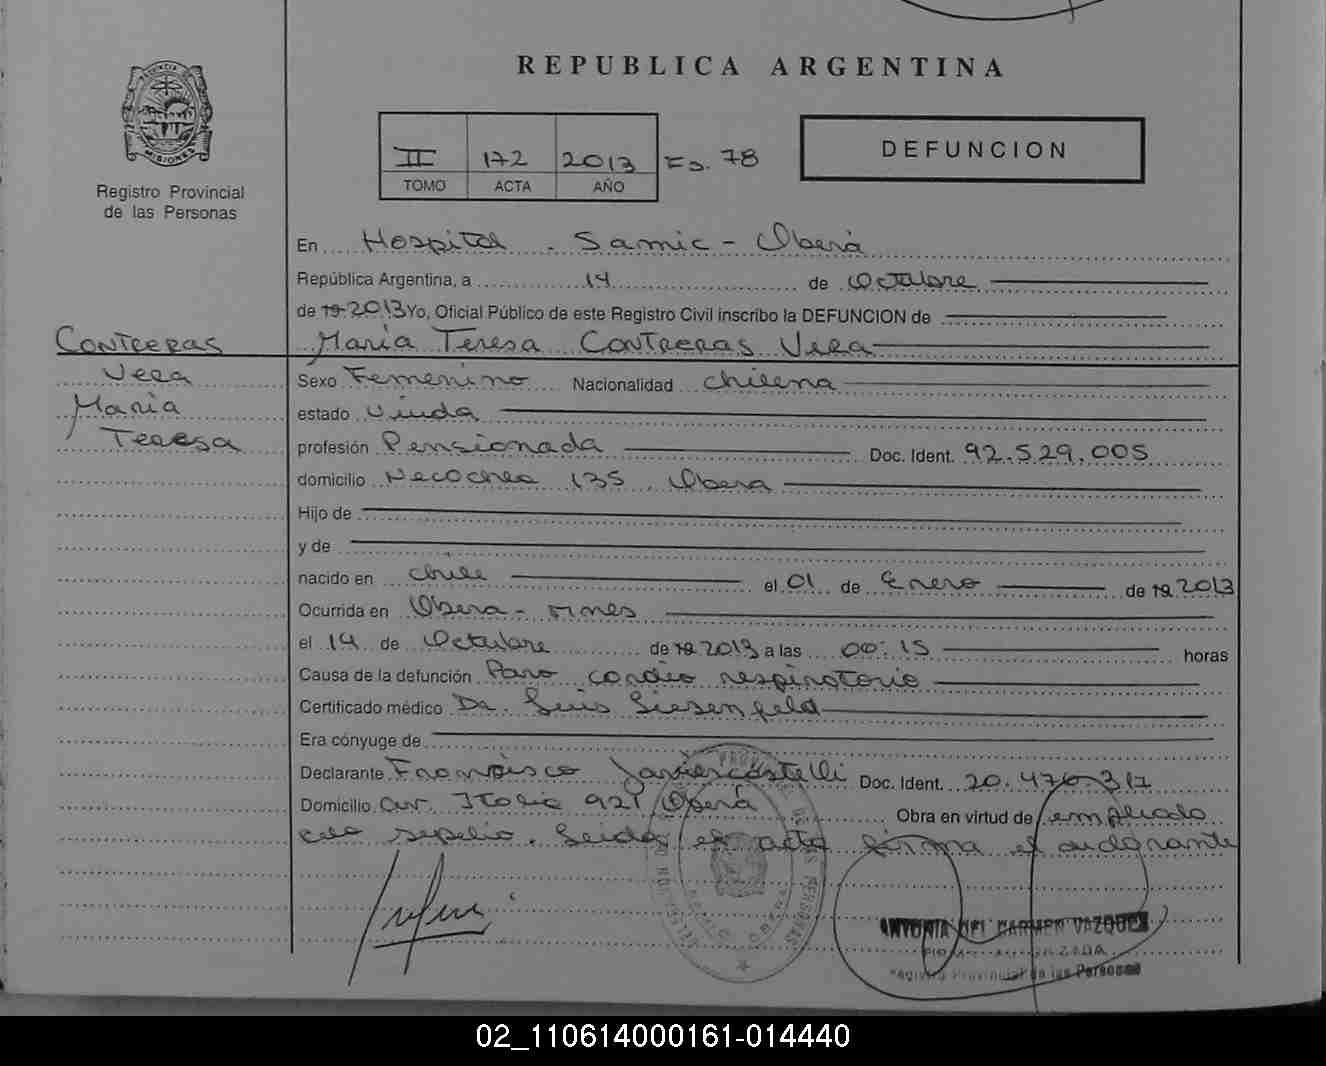 REPUBLICA ARGENTINA
PROVINCIA DE
MISIONES
Registro Provincial
de las Personas
II 172 2013 Fo. 78
TOMO ACTA AÑO
DEFUNCION
En Hospital . Samic - Oberá
República Argentina, a 14 de Octubre
de 19 2013 Yo, Oficial Público de este Registro Civil inscribo la DEFUNCION de
María Teresa Contreras Vera
Contreras
Vera
María
Teresa
Sexo Femenino Nacionalidad chilena
estado Viuda
profesión Pensionada Doc. Ident. 92.529.005
domicilio Necochea 135 . Obera
Hijo de
y de
nacido en chile el 01 de Enero de 19 2013
Ocurrida en Obera - mnes
el 14 de Octubre de 19 2013 a las 00:15 horas
Causa de la defunción Paro cardio respiratorio
Certificado médico Dr. Luis Siesenfeld
Era cónyuge de
Declarante Francisco Javier Castelli Doc. Ident. 20.476.317
Domicilio av. Italia 921 Oberá Obra en virtud de empleado
sepelio. Leida el acta firma el
ANTONIA DEL CARMEN VAZQUEZ
Registro Provincial de las Personas
02_110614000161-014440